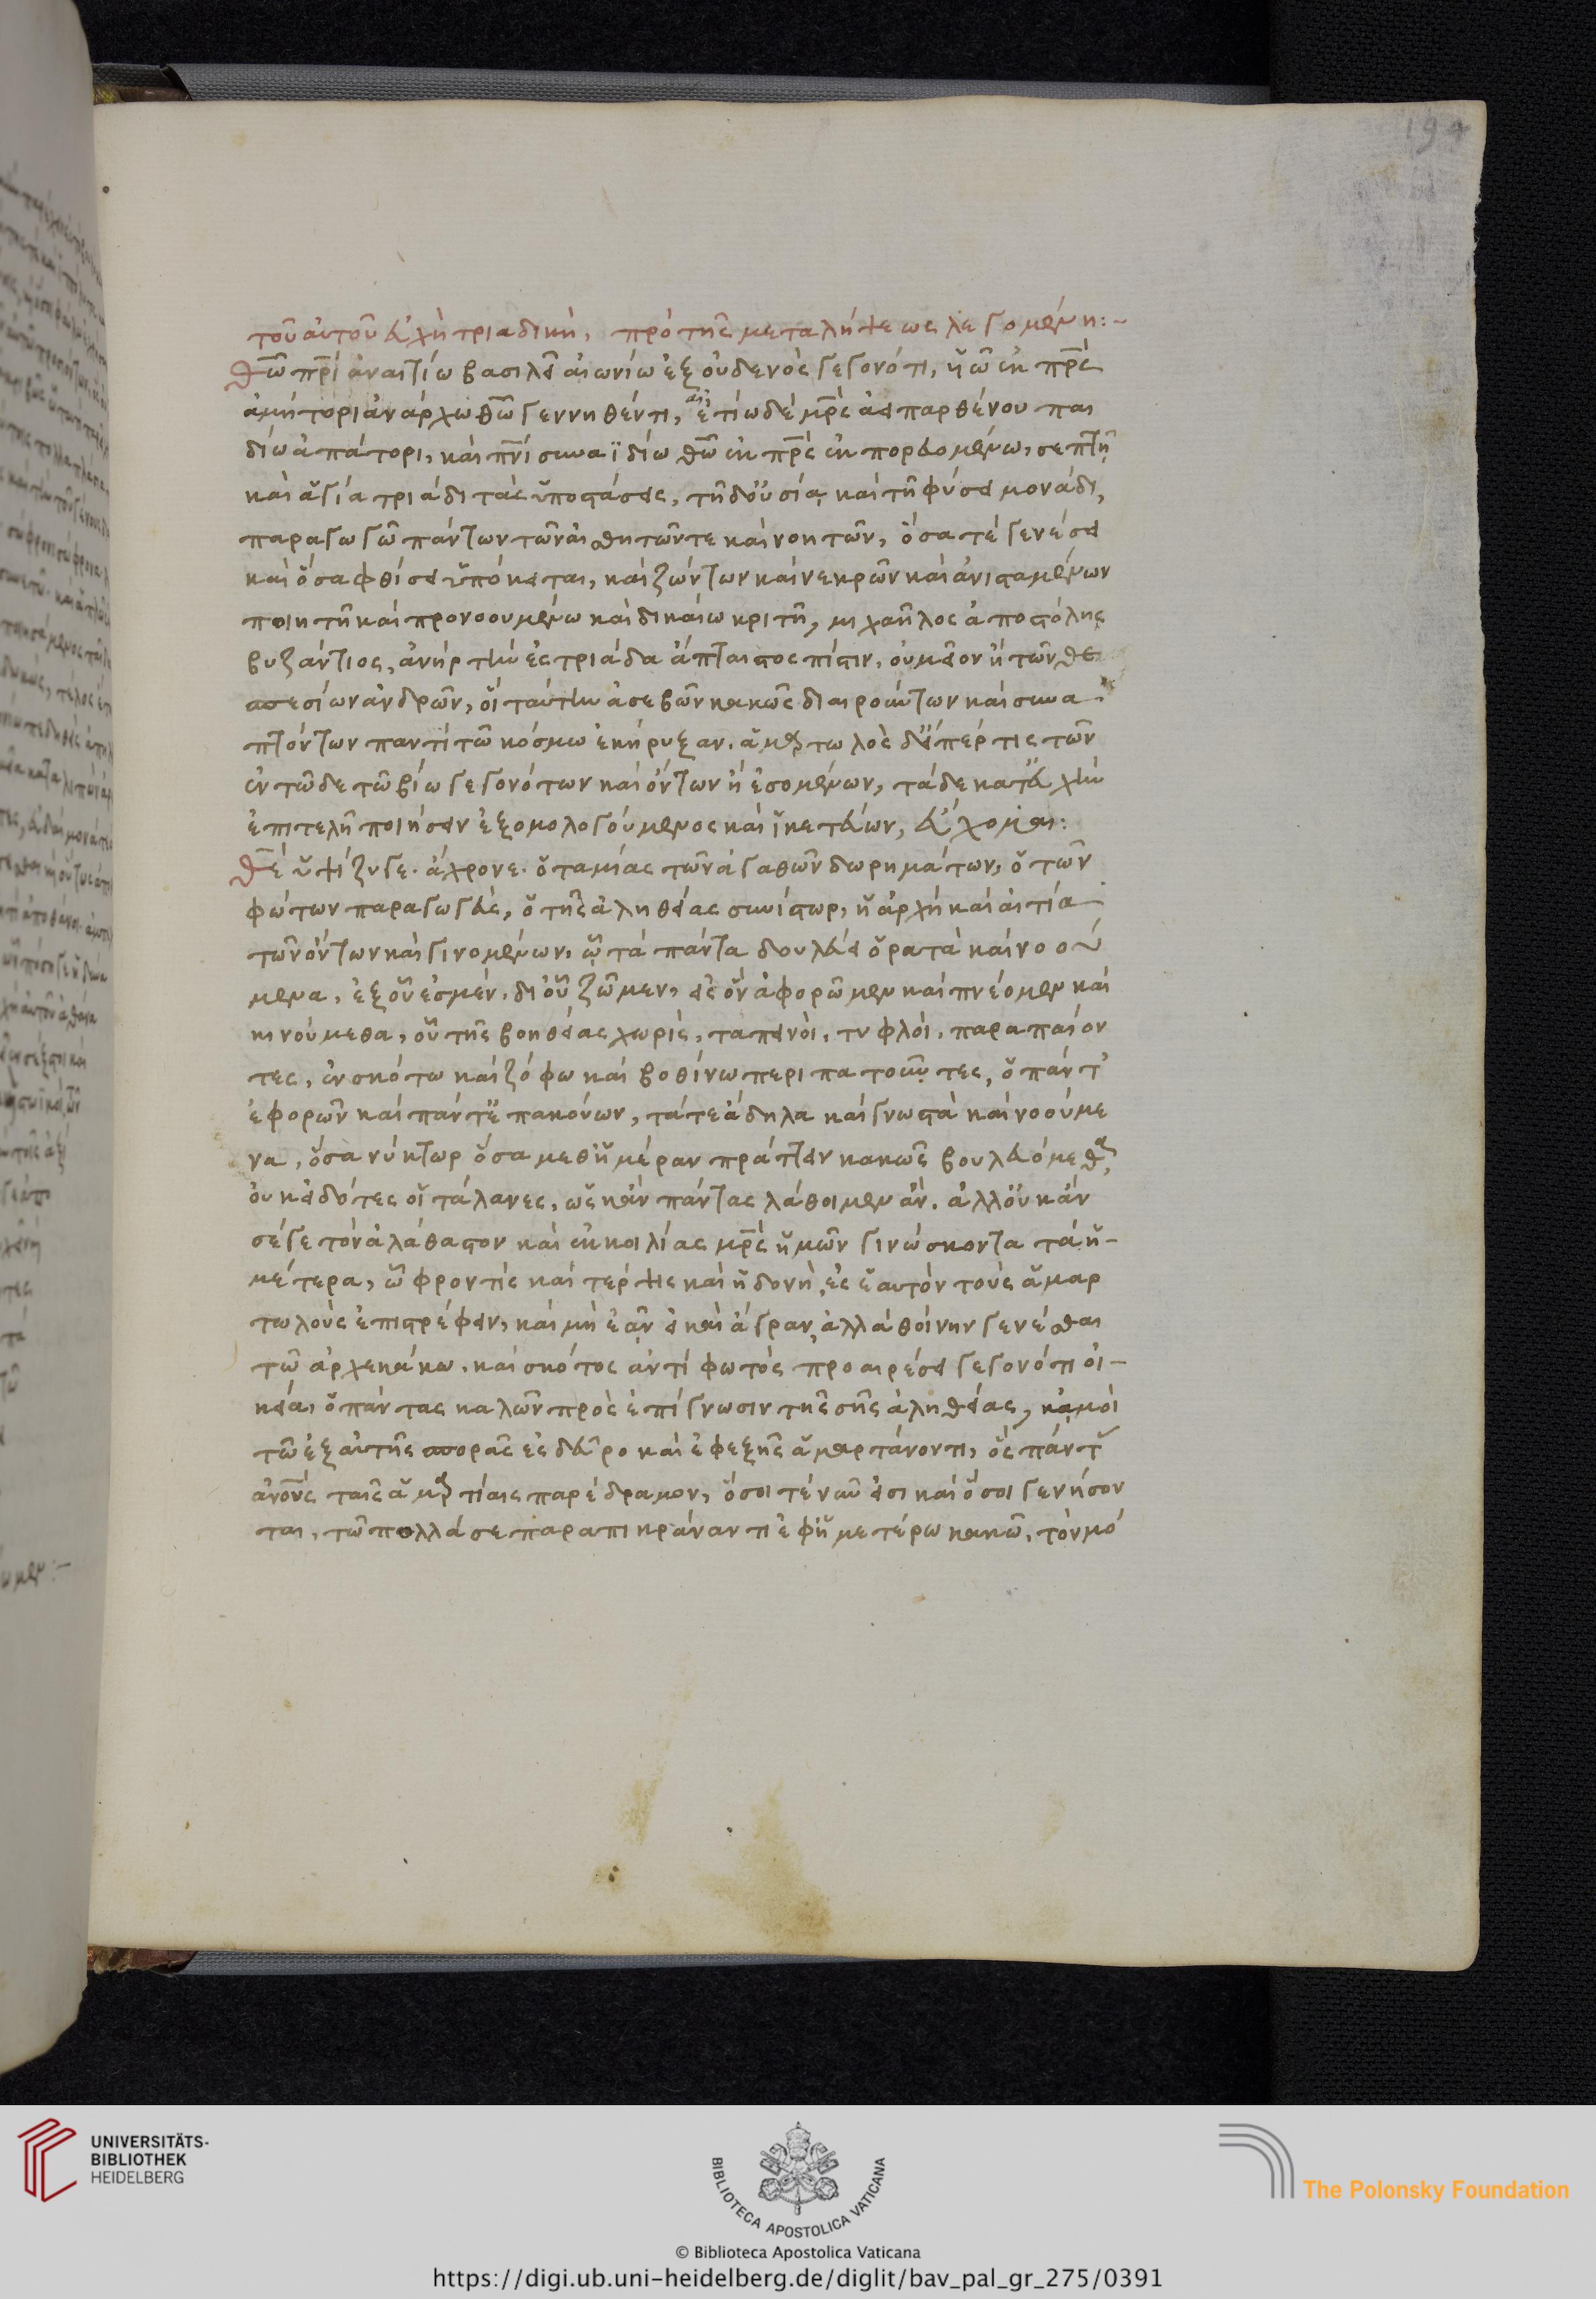 194
τοῦ αὐτοῦ εὐχὴ τριαδικὴ, πρὸ τῆς μεταλήψεως λεγομένη:-
Θω̅ πρ̅ι ἀναιτίω βασιλεῖ αἰωνίω ἐξ οὐδενὸς γεγονότι, υἱῶ ἐκ πρ̅ς
ἀμήτορι ἀνάρχω θω̅ γεννηθέντι, αἰτίω δὲ μρ̅ς ἀειπαρθένου παι
δίω ἀπάτορι, καὶ πν̅ι συναϊδίω θω̅ ἐκ πρ̅ς ἐκπορευομένω, σεπτῆ
καὶ ἁγία τριάδι ταῖς ὑποστάσεσι, τῆ δ' οὐσία καὶ τῆ φύσει μονάδι,
παραγωγῶ πάντων τῶν αἰσθητῶν τε καὶ νοητῶν, ὅσα τὲ γενέσει
καὶ ὅσα φθίσει ὑπόκειται, καὶ ζώντων καὶ νεκρῶν καὶ ἀνισταμένων
ποιητῆ καὶ προνοουμένω καὶ δικαίω κριτῆ, μιχαῆλος ἀποστόλης
βυζάντιος, ἀνὴρ τὴν ἐς τριάδα ἄπταιστος πίστιν, οὐ μεῖον ἢ τῶν θε
σπεσίων ἀνδρῶν, οἳ ταύτην ἀσεβῶν κακῶς διαιρούντων καὶ συνα
πτόντων παντὶ τῶ κόσμω ἐκήρυξαν. ἁμαρτωλὸς δ' εἴπέρ τις τῶν
ἐν τῶδε τῶ βίω γεγονότων καὶ ὄντων ἢ ἐσομένων, τάδε κατ' εὐχὴν
ἐπιτελῆ ποιήσειν ἐξομολογούμενος καὶ ἱκετεύων, εὔχομαι:
Θε̅ ὑψίζυγε. ἄχρονε. ὁ ταμίας τῶν ἀγαθῶν δωρημάτων, ὁ τῶν
φώτων παραγωγεὺς, ὁ τῆς ἀληθείας συνίστωρ, ἡ ἀρχὴ καὶ αἰτία
τῶν ὄντων καὶ γινομένων, ὧ τὰ πάντα δουλεύει ὁρατὰ καὶ νοού
μενα, ἐξ οὗ ἐσμὲν. δι' οὗ ζῶμεν, εἰς ὃν ἀφορῶμεν καὶ πνέομεν καὶ
κινούμεθα, οὗ τῆς βοηθείας χωρὶς, ταπεινοὶ, τυφλοὶ, παραπαίον
τες, ἐν σκότω καὶ ζόφω καὶ βοθίνω περιπατοῦντες, ὁ πάντ'
ἐφορῶν καὶ πάντ' ἐπακούων, τά τε ἄδηλα καὶ γνωστὰ καὶ νοούμε
να, ὅσα νύκτωρ ὅσα μεθ' ἡμέραν πράττειν κακῶς βουλευόμεθα,
οὐκ εἰδότες οἱ τάλανες, ὡς κἂν πάντας λάθοιμεν ἂν. ἀλλ' οὐκ ἂν
σέγε τὸν ἀλάθαστον καὶ ἐκ κοιλίας μρ̅ς ἡμῶν γινώσκοντα τὰ ἡ-
μέτερα, ὦ φροντὶς καὶ τέρψις καὶ ἡδονὴ, εἰς ἑαυτὸν τοὺς ἁμαρ
τωλοὺς ἐπιστρέφειν, καὶ μὴ ἐᾶν εἰκαὶ ἄγραν, ἀλλὰ θοίνην γενέσθαι
τῶ ἀρχεκάκω. καὶ σκότος ἀντὶ φωτὸς προαιρέσει γεγονότι οἰ-
κεία, ὁ πάντας καλῶν πρὸς ἐπίγνωσιν τῆς σῆς ἀληθείας, κἀμοὶ
τῶ ἐξ αὐτῆς σπορᾶς εἰς δεῦρο καὶ ἐφεξῆς ἁμαρτάνοντι, ὃς πάντας
ἀνο̅υς ταῖς ἁμαρτίαις παρέδραμον, ὅσοι τὲ νῦν εἰσι καὶ ὅσοι γενήσον
ται, τῶ πολλά σε παραπικράναντι ἐφ' ἡμετέρω κακῶ, τὸν μό
UNIVERSITÄTS-
BIBLIOTHEK
HEIDELBERG
BIBLIOTECA APOSTOLICA VATICANA
The Polonsky Foundation
© Biblioteca Apostolica Vaticana
https://digi.ub.uni-heidelberg.de/diglit/bav_pal_gr_275/0391